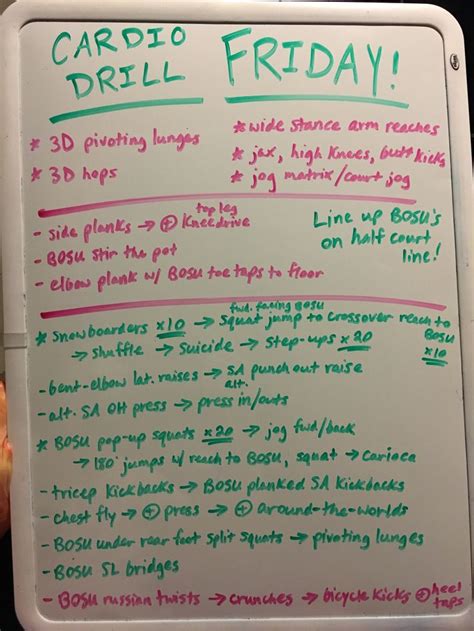 CARDIO DRILL FRIDAY!
* 3D pivoting lunges
* 3D hops
* wide stance arm reaches
* jax, high knees, butt kicks
* jog matrix/court jog
- side planks → ⊕ top leg Kneedrive
- BOSU stir the pot
- elbow plank w/ BOSU toe taps to floor
Line up BOSU's
on half court
line!
fwd. facing BOSU
* Snowboarders x10 → Squat jump to crossover reach to BOSU x10
→ shuffle → Suicide → Step-ups x20
- bent-elbow lat. raises → SA punch out raise
alt.
- alt. SA OH press → press in/outs
* BOSU pop-up squats x20 → jog fwd/back
→ 180° jumps w/ reach to BOSU, squat → Carioca
- tricep Kickbacks → BOSU planked SA Kickbacks
- chest fly → ⊕ press → ⊕ around-the-worlds
- BOSU under rear foot split squats → pivoting lunges
- BOSU SL bridges
- BOSU russian twists → crunches → bicycle kicks ⊕ heel taps